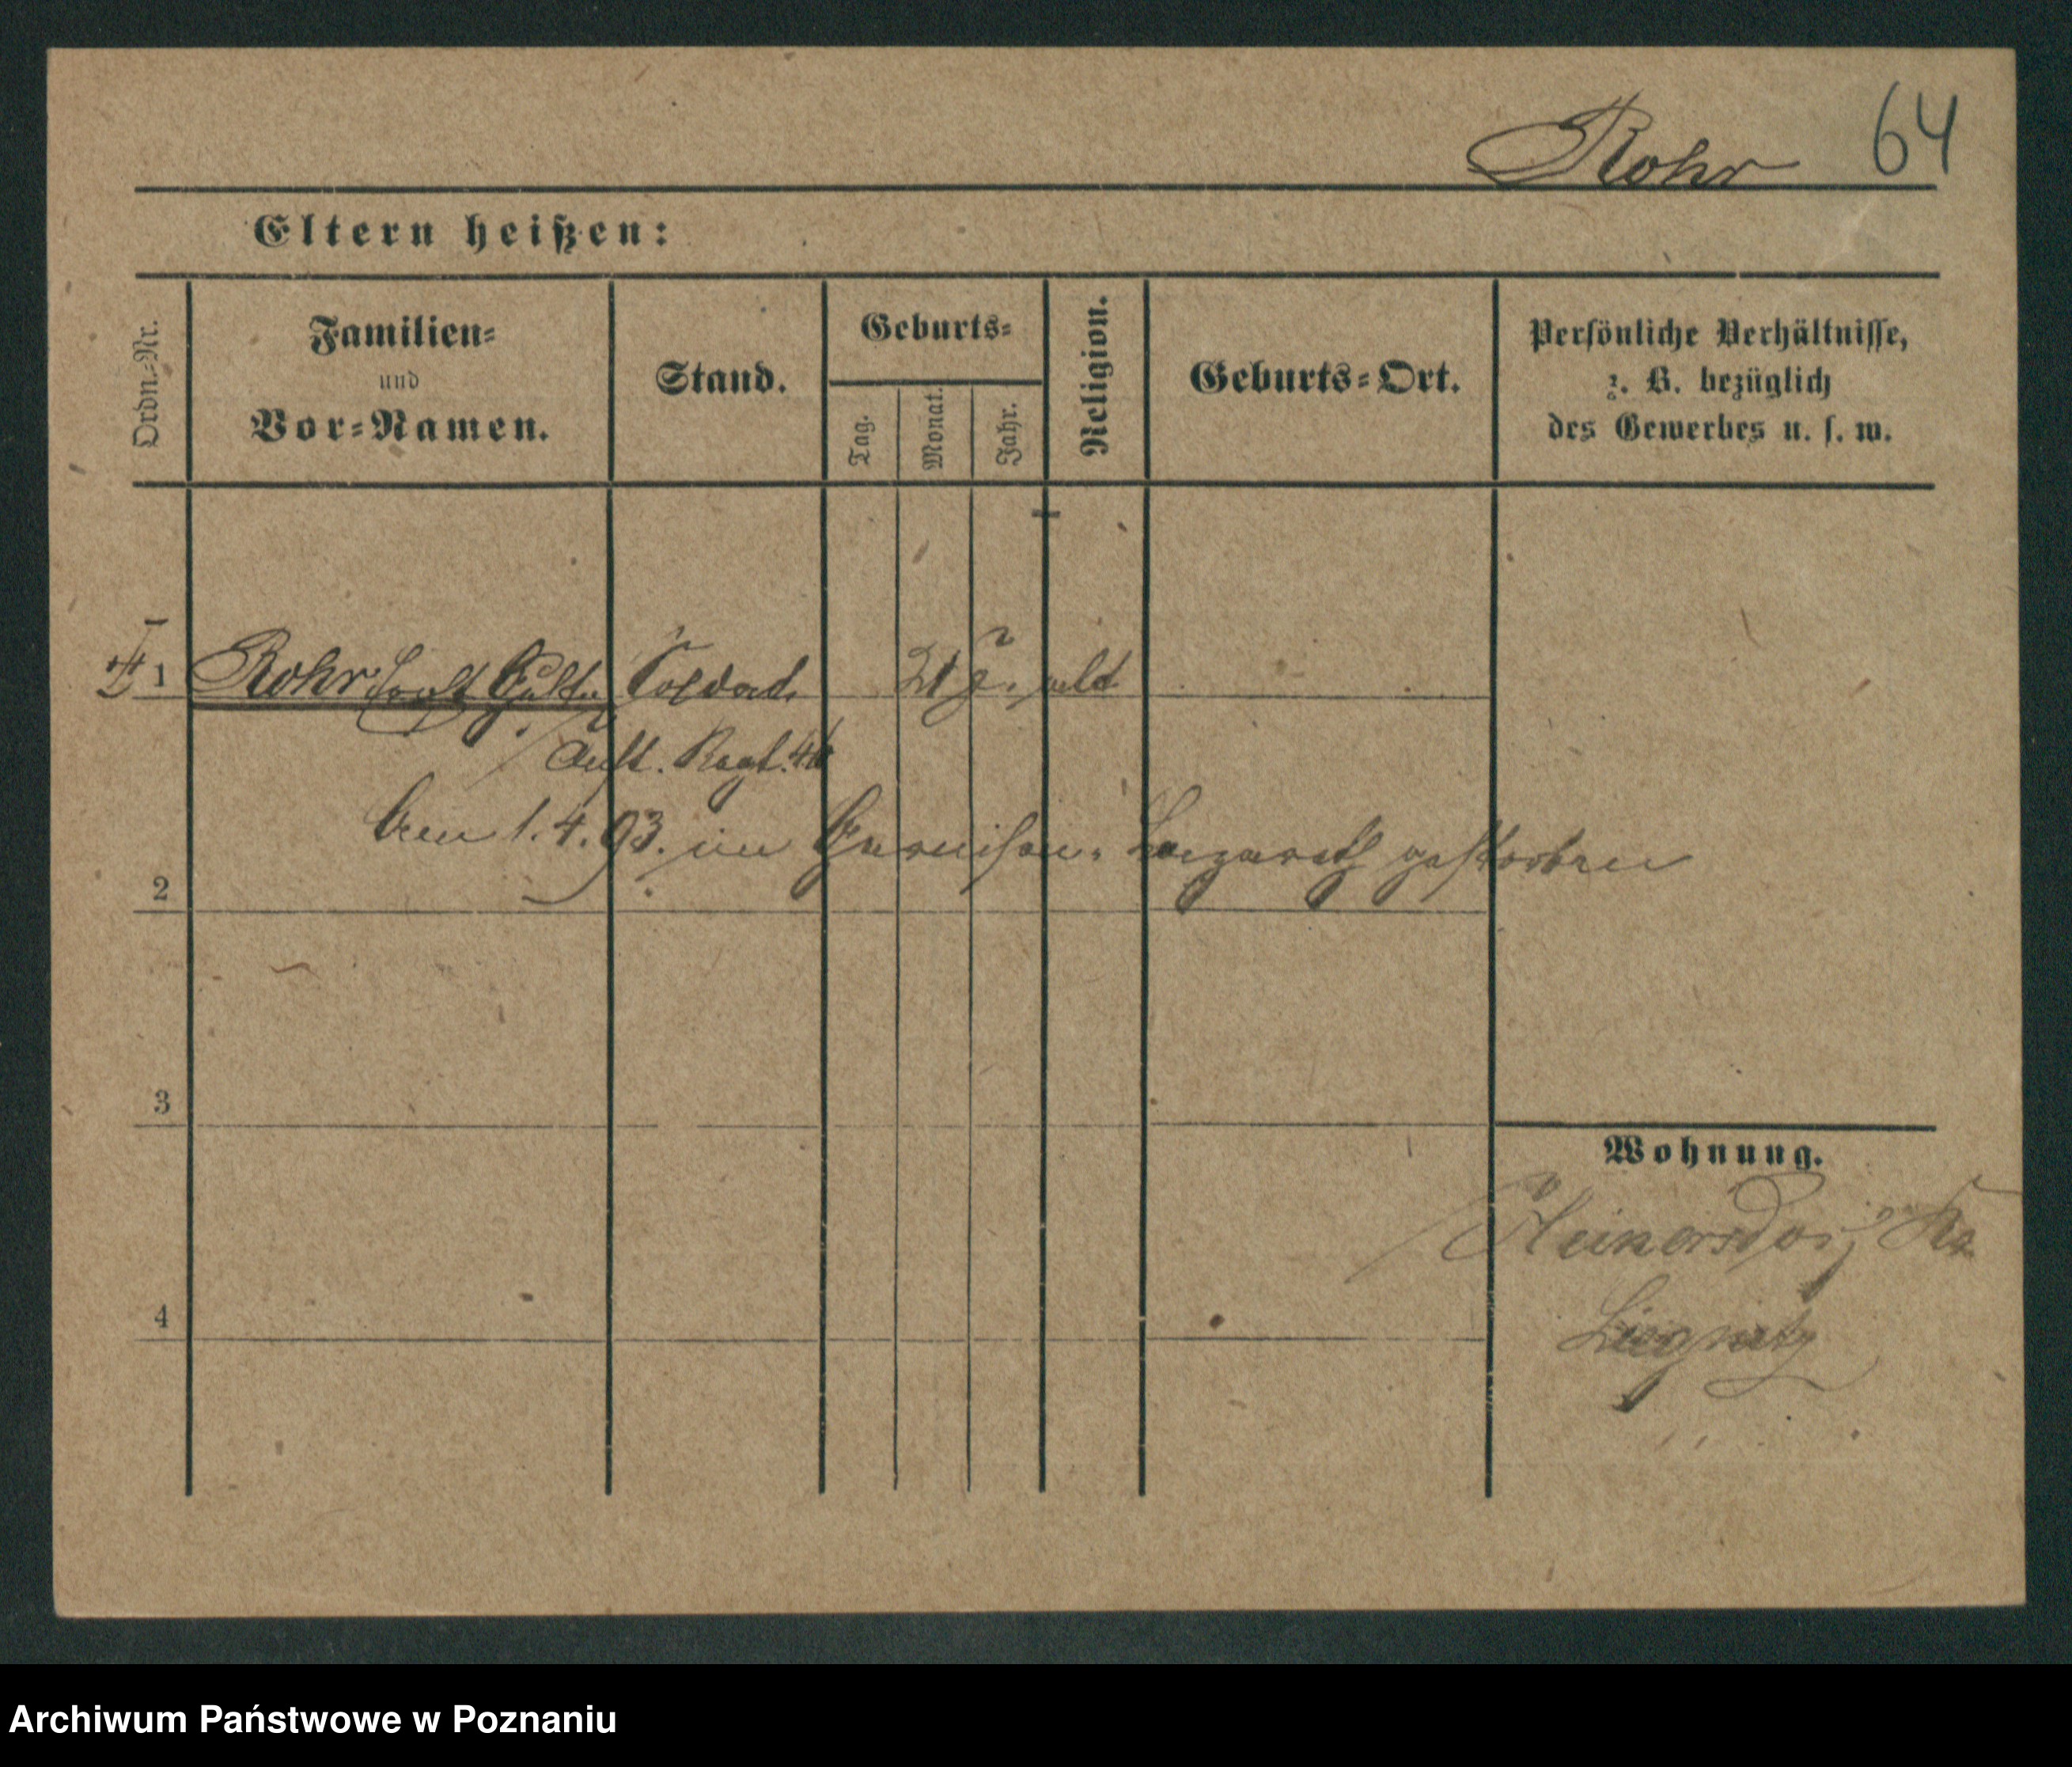 Rohr 64
Eltern heißen:
Ordn.-Nr.
Familien-
und
Vor-Namen.
Stand.
Geburts-
Tag.
Monat.
Jahr.
Religion.
Geburts-Ort.
Persönliche Verhältnisse,
z. B. bezüglich
des Gewerbes u. s. w.
1 Rohr Soldat 21 J. alt
Regt. 46
Am 1.4.93. im Garnison-Lazareth gestorben
2
3
4
Wohnung.
Heinersdorf Kr
Liegnitz
Archiwum Państwowe w Poznaniu